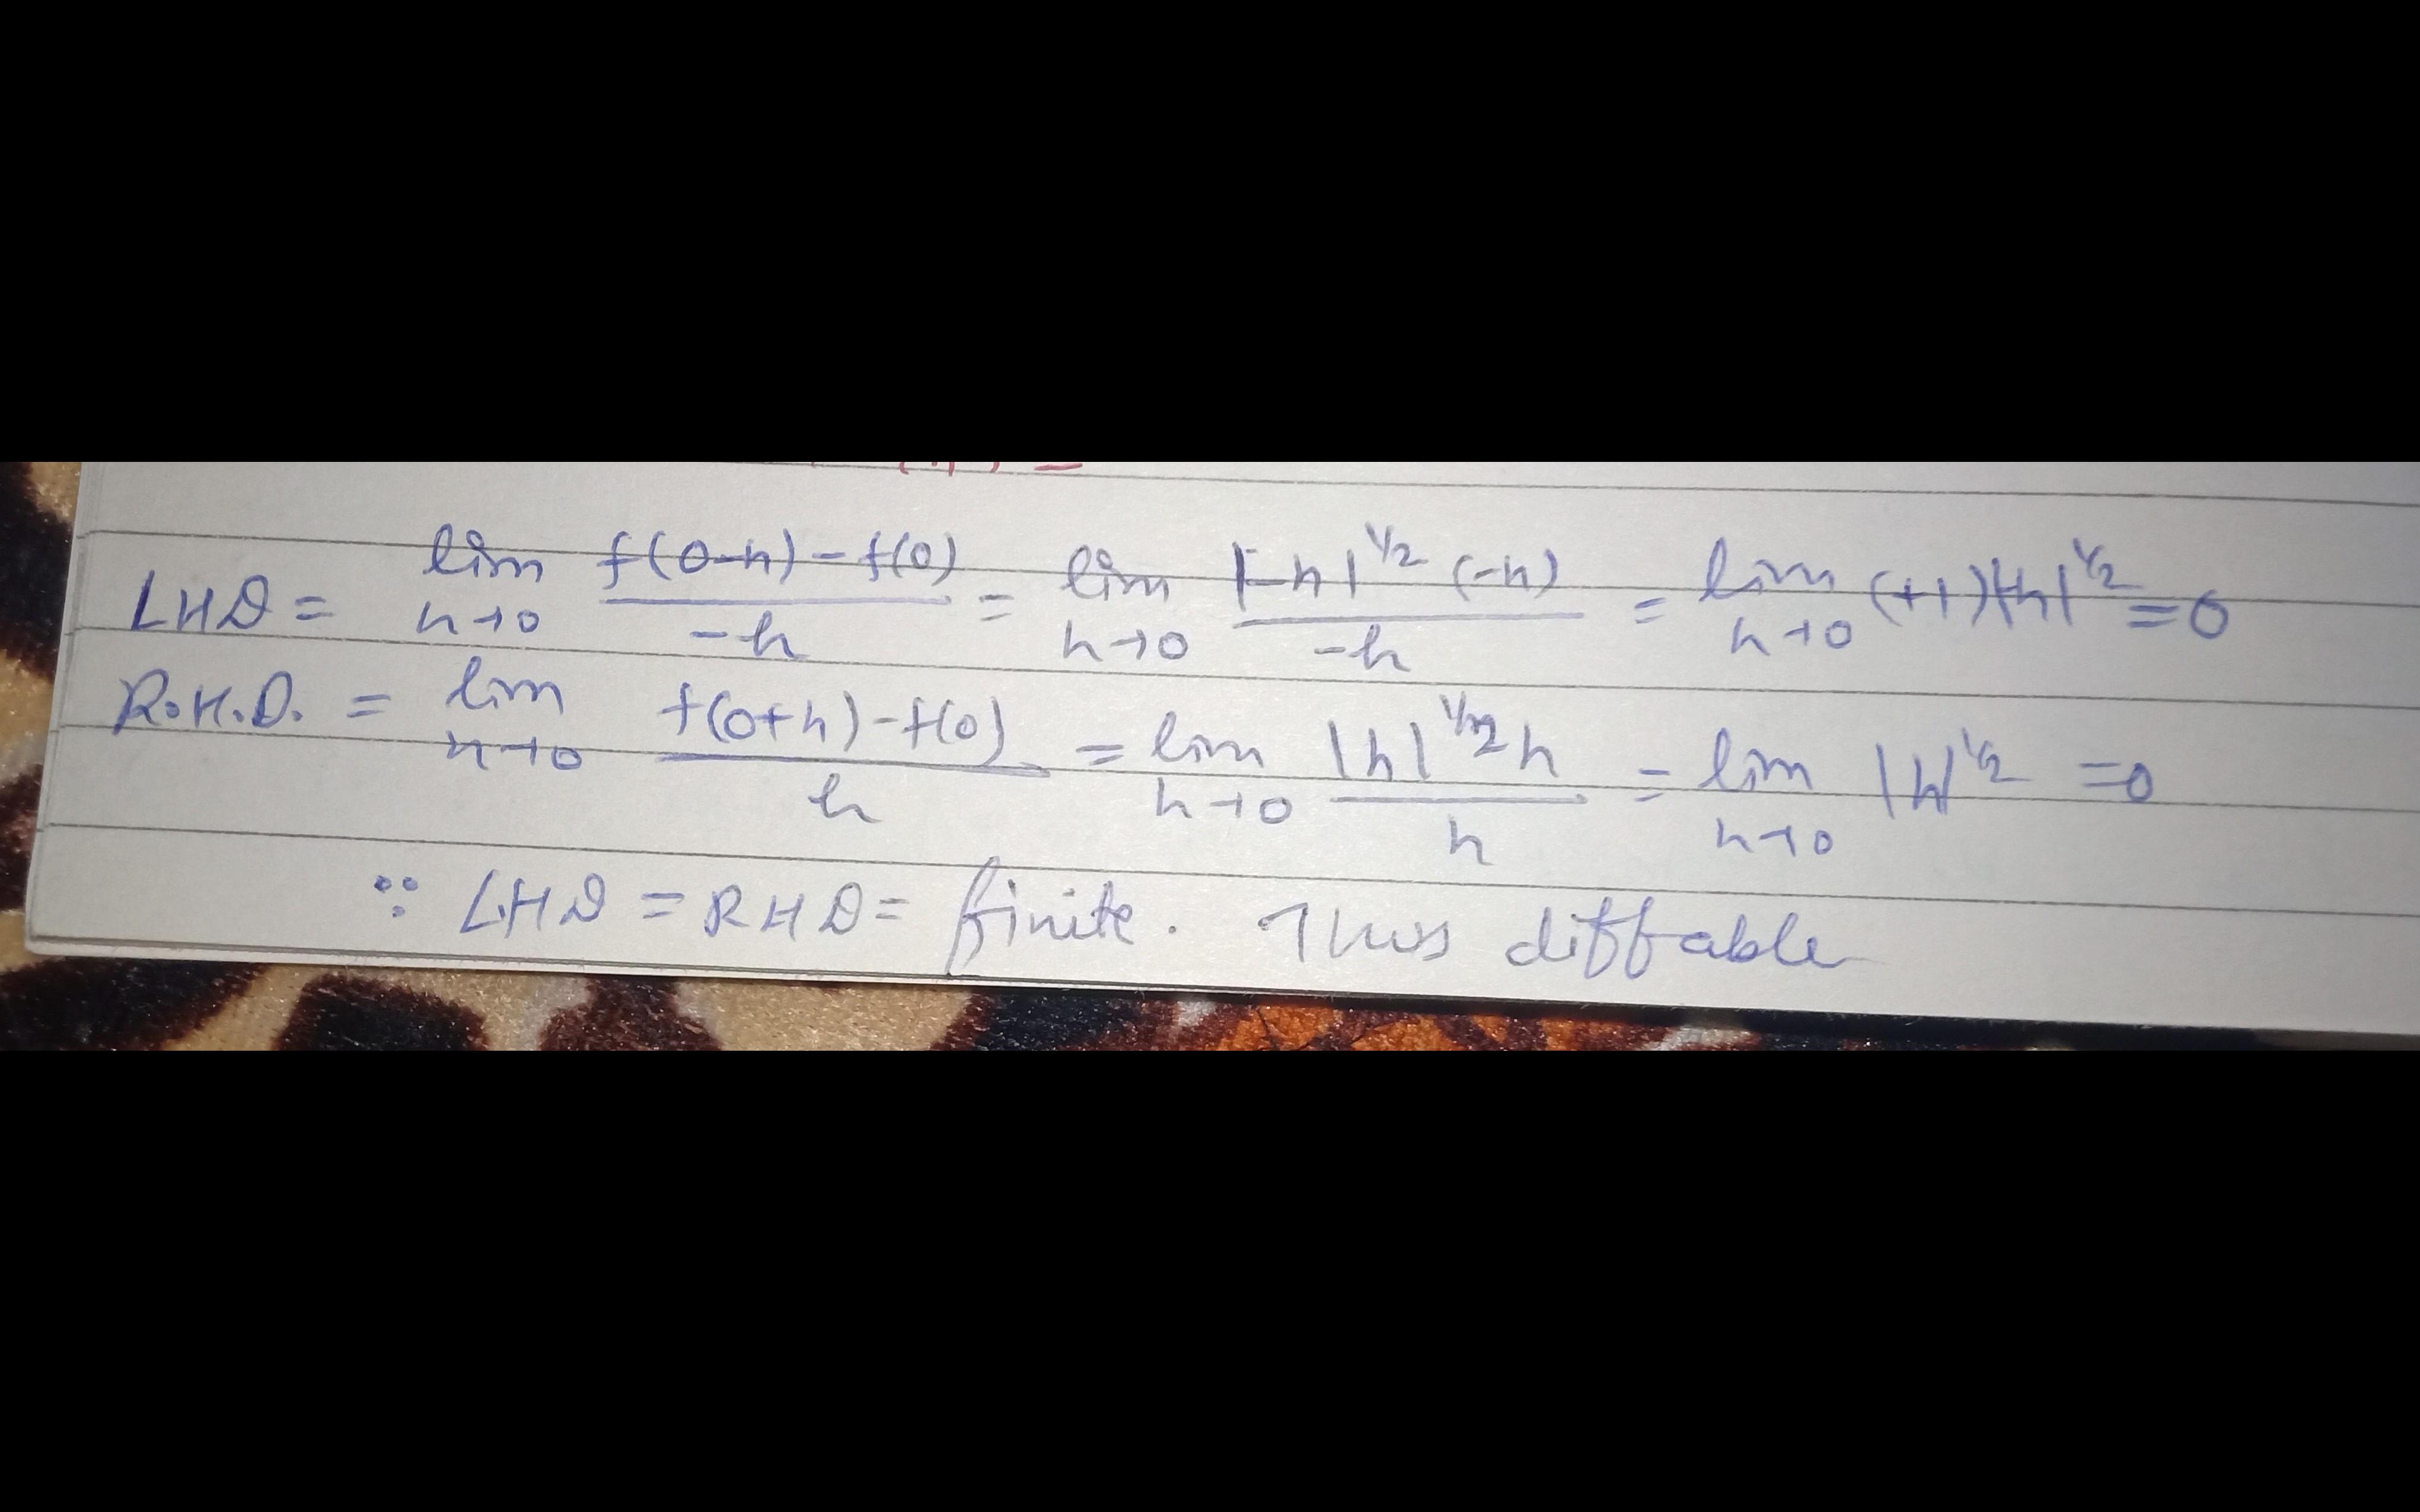 LHD = lim h→0 f(0-h) - f(0) / -h = lim h→0 |-h|^1/2 (-h) / -h = lim h→0 (+1)|h|^1/2 = 0
R.H.D. = lim h→0 f(0+h) - f(0) / h = lim h→0 |h|^1/2 h / h = lim h→0 |h|^1/2 = 0
∵ LHD = RHD = finite. Thus diffable